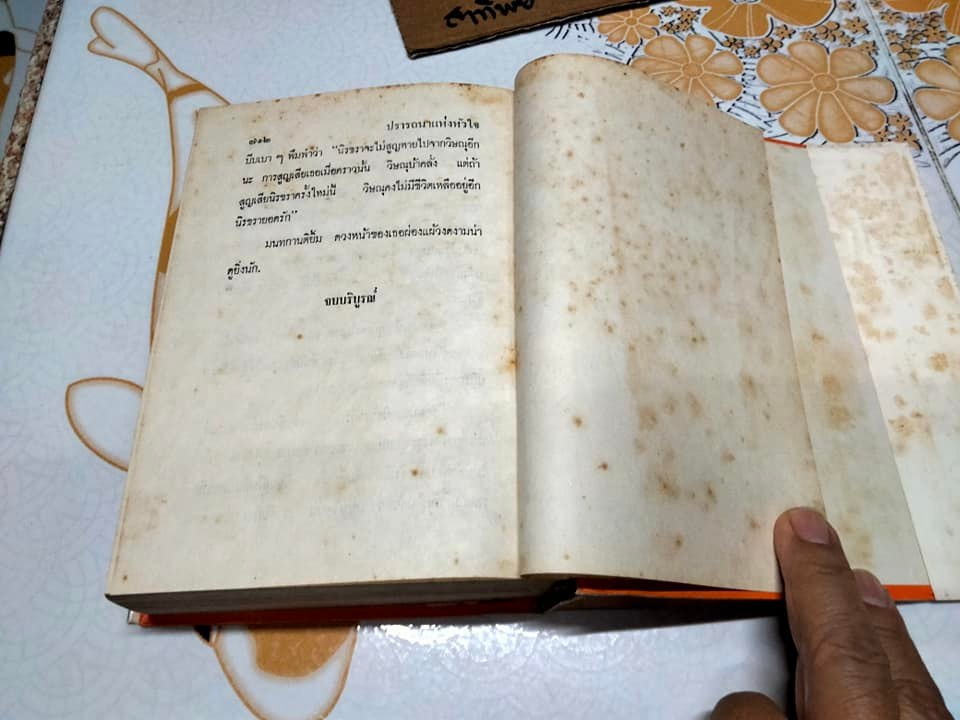 สาทิพย์
๗๑๒
ปรารถนาแห่งหัวใจ
บีบเบา ๆ พึมพำว่า “นิรชราจะไม่สูญหายไปจากวิษณุอีก
นะ การสูญเสียเธอเมื่อคราวนั้น วิษณุบ้าคลั่ง แต่ถ้า
สูญเสียนิรชราครั้งใหม่นี้ วิษณุคงไม่มีชีวิตเหลืออยู่อีก
นิรชรายอดรัก”
มนทกานติยิ้ม ดวงหน้าของเธอผ่องแผ้วงดงามน่า
ดูยิ่งนัก.
จบบริบูรณ์